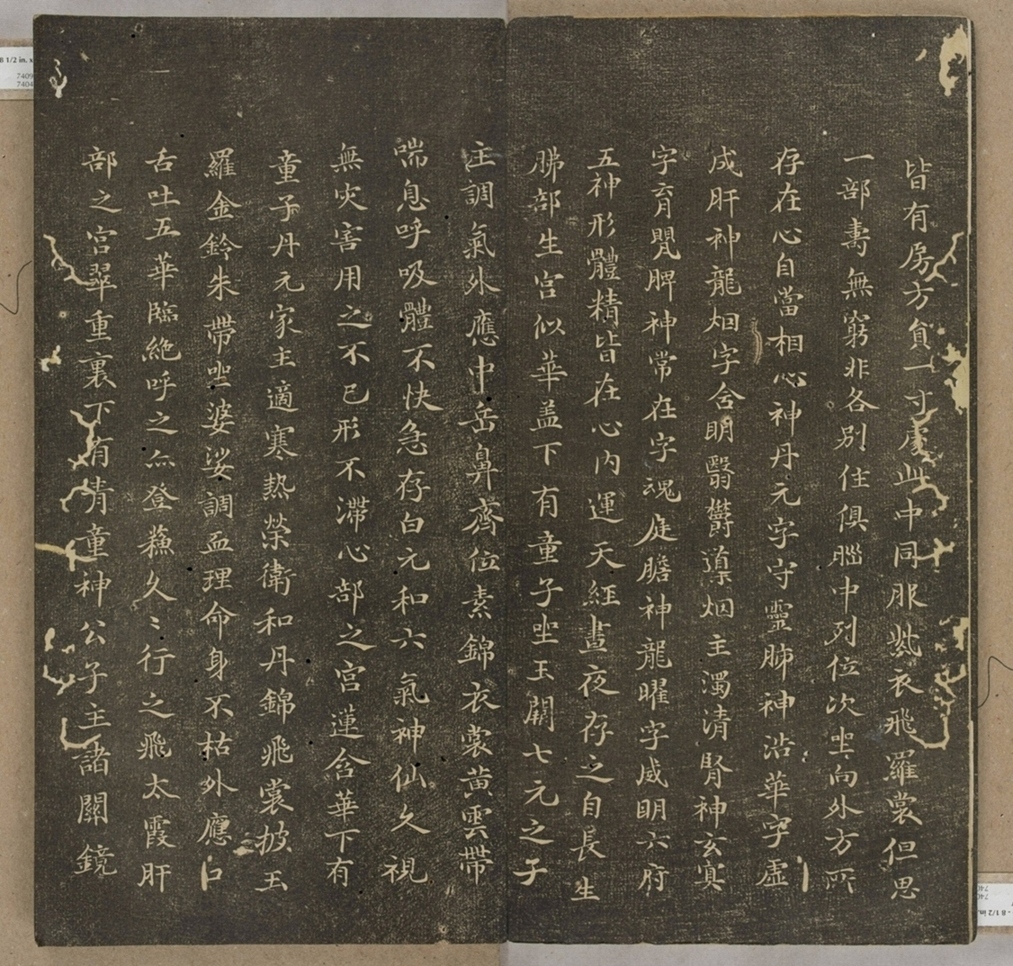 皆有房方負一寸處此中同服紫衣飛羅裳但思
一部壽無窮非各別住俱腦中列位次坐向外方所
存在心自當相心神丹元字守靈肺神浩華字虛
成肝神龍烟字含明翳鬱導烟主濁清腎神玄冥
字育嬰脾神常在字魂庭膽神龍曜字威明六府
五神形體精皆在心内運天經晝夜存之自長生
肺部生宮似華盖下有童子坐玉闕七元之子
主調氣外應中岳鼻齊位素錦衣裳黄雲帶
喘息呼吸體不快急存白元和六氣神仙久視
無灾害用之不已形不滯心部之宮蓮含華下有
童子丹元家主適寒熱榮衛和丹錦飛裳披玉
羅金鈴朱帶坐婆娑調血理命身不枯外應口
舌吐五華臨絶呼之亦登蘇久〻行之飛太霞肝
部之宮翠重裏下有青童神公子主諸關鏡
8 1/2 in. x
7409
7404